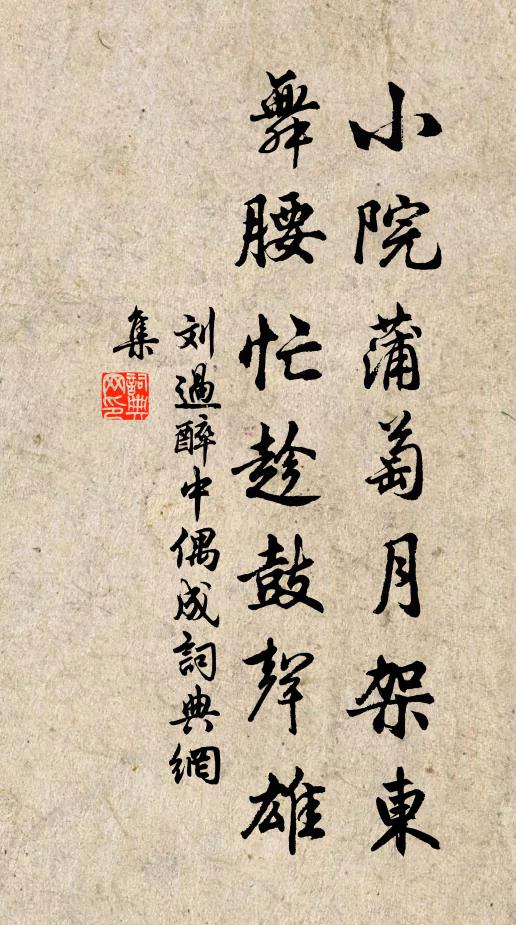 小院蒲萄月架東
舞腰忙趁鼓聲雄
刘過醉中偶成詞典網
集
詞典网印